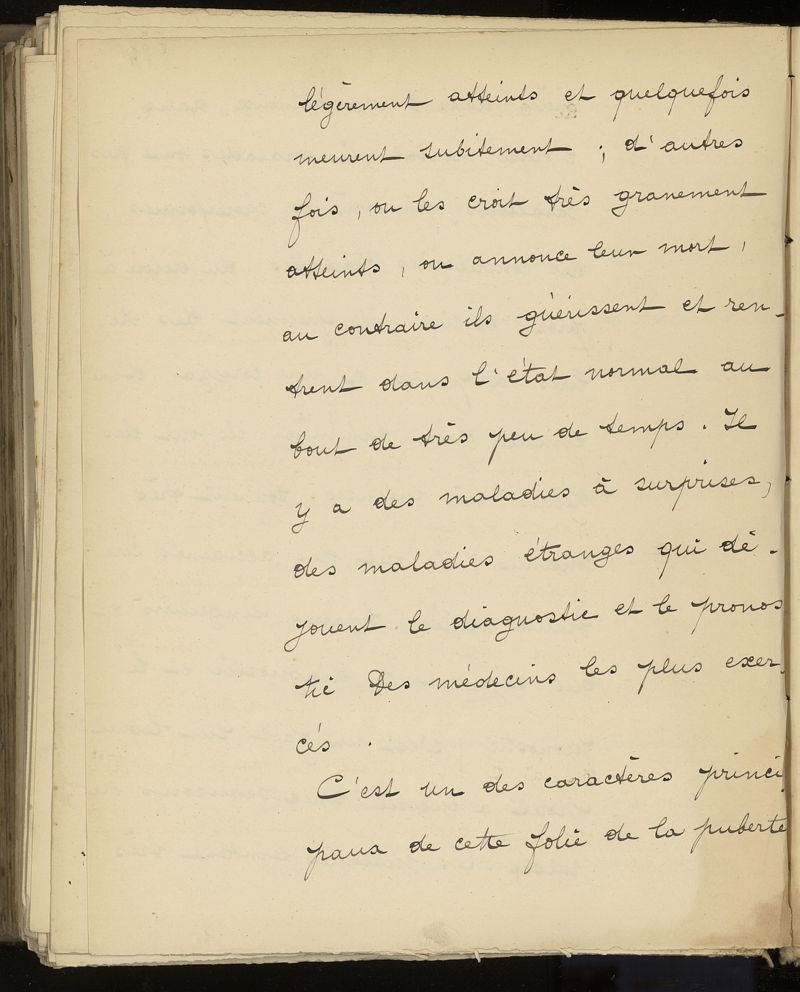 légèrement atteints et quelquefois
meurent subitement ; d'autres
fois, on les croit très gravement
atteints, on annonce leur mort,
au contraire ils guérissent et ren-
trent dans l'état normal au
bout de très peu de temps. Il
y a des maladies à surprises,
des maladies étranges qui dé-
jouent le diagnostic et le pronos
tic des médecins les plus exer-
cés.
C'est un des caractères princi
paux de cette folie de la puberté